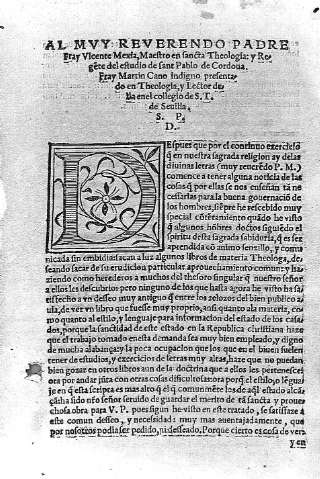 AL MVY REVERENDO PADRE
Fray Vicente Mexia, Maestro en sancta Theologia: y Re-
gẽte del estudio de sant Pablo de Cordoua.
Fray Martin Cano indigno presenta-
do en Theologia, y Lector de-
lla en el collegio de S. T.
de Seuilla,
S. P.
D.
DEspues que por el continuo exercicio
q̃ en nuestra sagrada religion ay de las
diuinas letras (muy reuerẽdo P. M.)
comence a tener alguna noticia de las
cosas q̃ por ellas se nos enseñan tã ne
cessarias para la buena gouernació de
los hombres, siẽpre he rescebido muy
special cõtẽtamiento quãdo he visto
q̃ algunos hõbres doctos siguiẽdo el
spiritu desta sagrada sabiduria, q̃ es ser
aprendida cõ animo senzillo, y comu
nicada sin embidia sacan a luz algunos libros de materia Theologa, de-
seando sacar de su erudicion a particular aprouechamiento comun: y ha-
ziendo como herederos a muchos del thesoro singular q̃ nuestro señor
a ellos les descubrio: pero ninguno de los que hasta agora he visto ha sa-
tisfecho a vn desseo muy antiguo q̃ entre los zelosos del bien publico a-
uia, de ver vn libro que fuesse muy proprio, assi quanto a la materia, co-
mo quanto al estilo, y lenguaje para informacion del estado de los casa-
dos, porque la sanctidad de este estado en la Republica christiana haze
que el trabajo tomado en esta demanda sea muy bien empleado, y digno
de mucha alabança: y la poca ocupacion que los que en el biuen suelen
tener de estudios, y exercicios de letras muy altas, haze que no puedan
bien gozar en otros libros aun de la doctrina que a ellos les pertenesce:
o por andar jũta con otras cosas dificultosas: o porq̃ el estilo, o lẽgua-
je en q̃ esta scripta es mas alto q̃ el q̃ comunmẽte los de aq̃l estado alcã-
çan: ha sido nr̃o señor seruido de guardar el merito de tã sancta y proue-
chosa obra para V. P. pues segun he visto en este tratado, se satisfaze a
este comun desseo, y necessidad muy mas auentajadamente, que
por nosotros podia ser pedido, ni desseado. Porque cierto es cosa de vera
y en